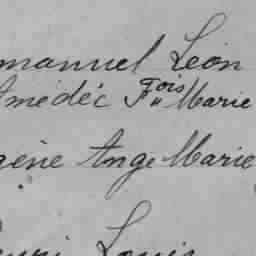 manuel Léon
Amédée Fois Marie
gène Ange Marie
enri Louis